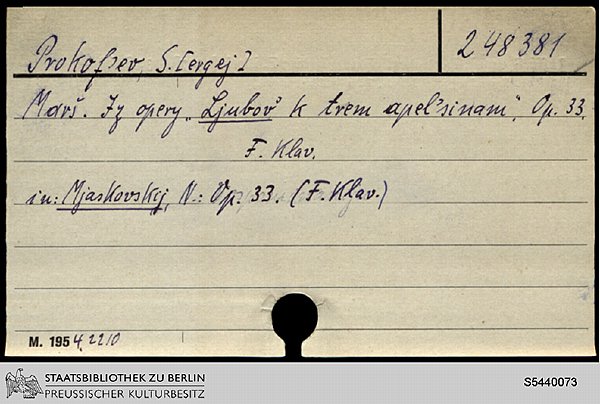 Prokof'ev, S.[ergej]
248381
Marš. Iz opery „Ljubov' k trem apel'sinam", Op. 33.
F. Klav.
in: Mjaskovskij, N.: Op. 33. (F. Klav.)
M. 1954. 2210
STAATSBIBLIOTHEK ZU BERLIN
PREUSSISCHER KULTURBESITZ
S5440073